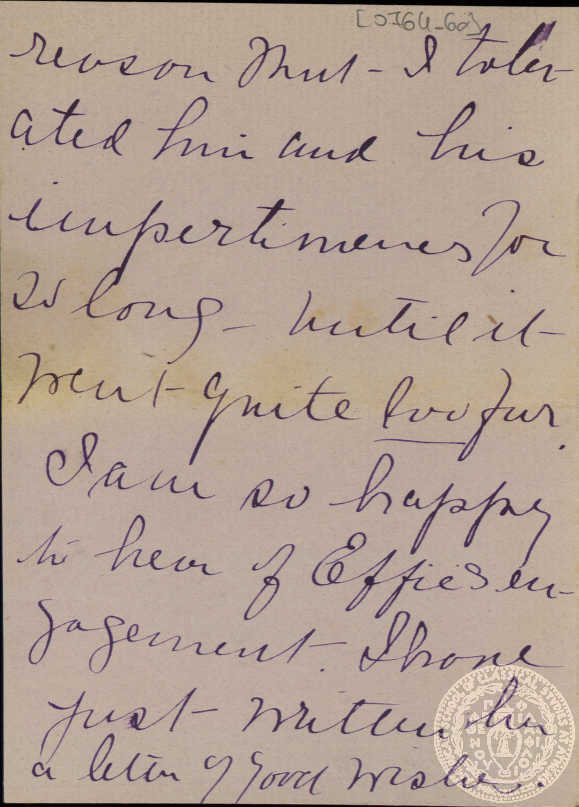 reason that - I toler-
ated him and his
impertinences for
so long - until it
went quite too far.
I am so happy
to hear of Effie's en-
gagement. I have
just written her
a letter of good wishes.